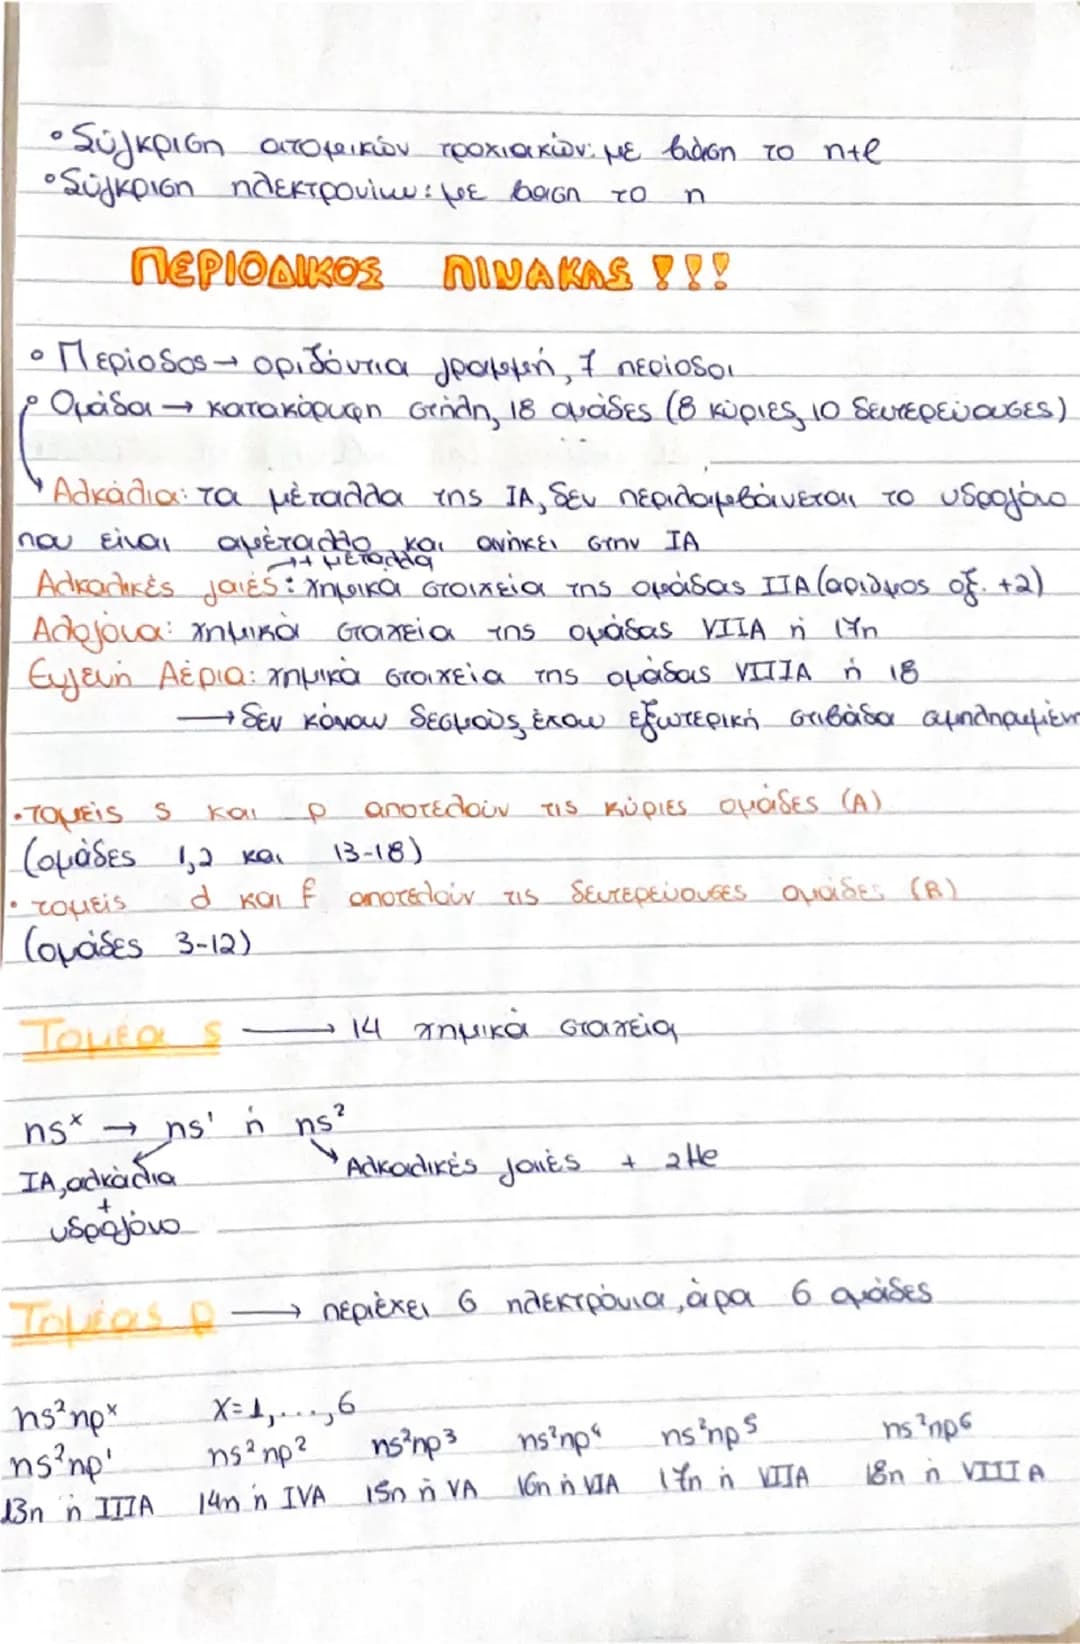 • Σύγκριση ατομικών τροχιακών: με βάση το n+l
• Σύγκριση ηλεκτρονίων: με βαση το n
ΠΕΡΙΟΔΙΚΟΣ ΠΙΝΑΚΑΣ !!!
• Περίοδος → οριζόντια γραμμή, 7 περίοδοι
• Ομάδα → κατακόρυφη στήλη, 18 ομάδες (8 κύριες, 10 δευτερεύουσες)
Αλκάλια: τα μέταλλα της IA, δεν περιλαμβάνεται το υδρογόνο
που είναι αμέταλλο και ανήκει στην IA
→ + μέταλλα
Αλκαλικές γαιές: χημικά στοιχεία της ομάδας IIA (αριθμος οξ. +2)
Αλογόνα: χημικά στοιχεία της ομάδας VIIA ή 17η
Ευγενή Αέρια: χημικά στοιχεία της ομάδας VIIIA ή 18
→ δεν κάνουν δεσμούς, έχουν εξωτερική στιβάδα συμπληρωμένη
• τομείς s και p αποτελούν τις κύριες ομάδες (A)
(ομάδες 1,2 και 13-18)
• τομείς d και f αποτελούν τις δευτερεύουσες ομάδες (B)
(ομάδες 3-12)
Τομέα s → 14 χημικά στοιχεία
nsˣ → ns¹ ή ns²
IA, αλκάλια Αλκαλικές γαιές + ₂He
+
υδρογόνο
Τομέας p → περιέχει 6 ηλεκτρόνια, άρα 6 ομάδες
ns²npˣ x=1,...,6
ns²np¹ ns²np² ns²np³ ns²np⁴ ns²np⁵ ns²np⁶
13η ή IIIA 14η ή IVA 15η ή VA 16η ή VIA 17η ή VIIA 18η ή VIIIA